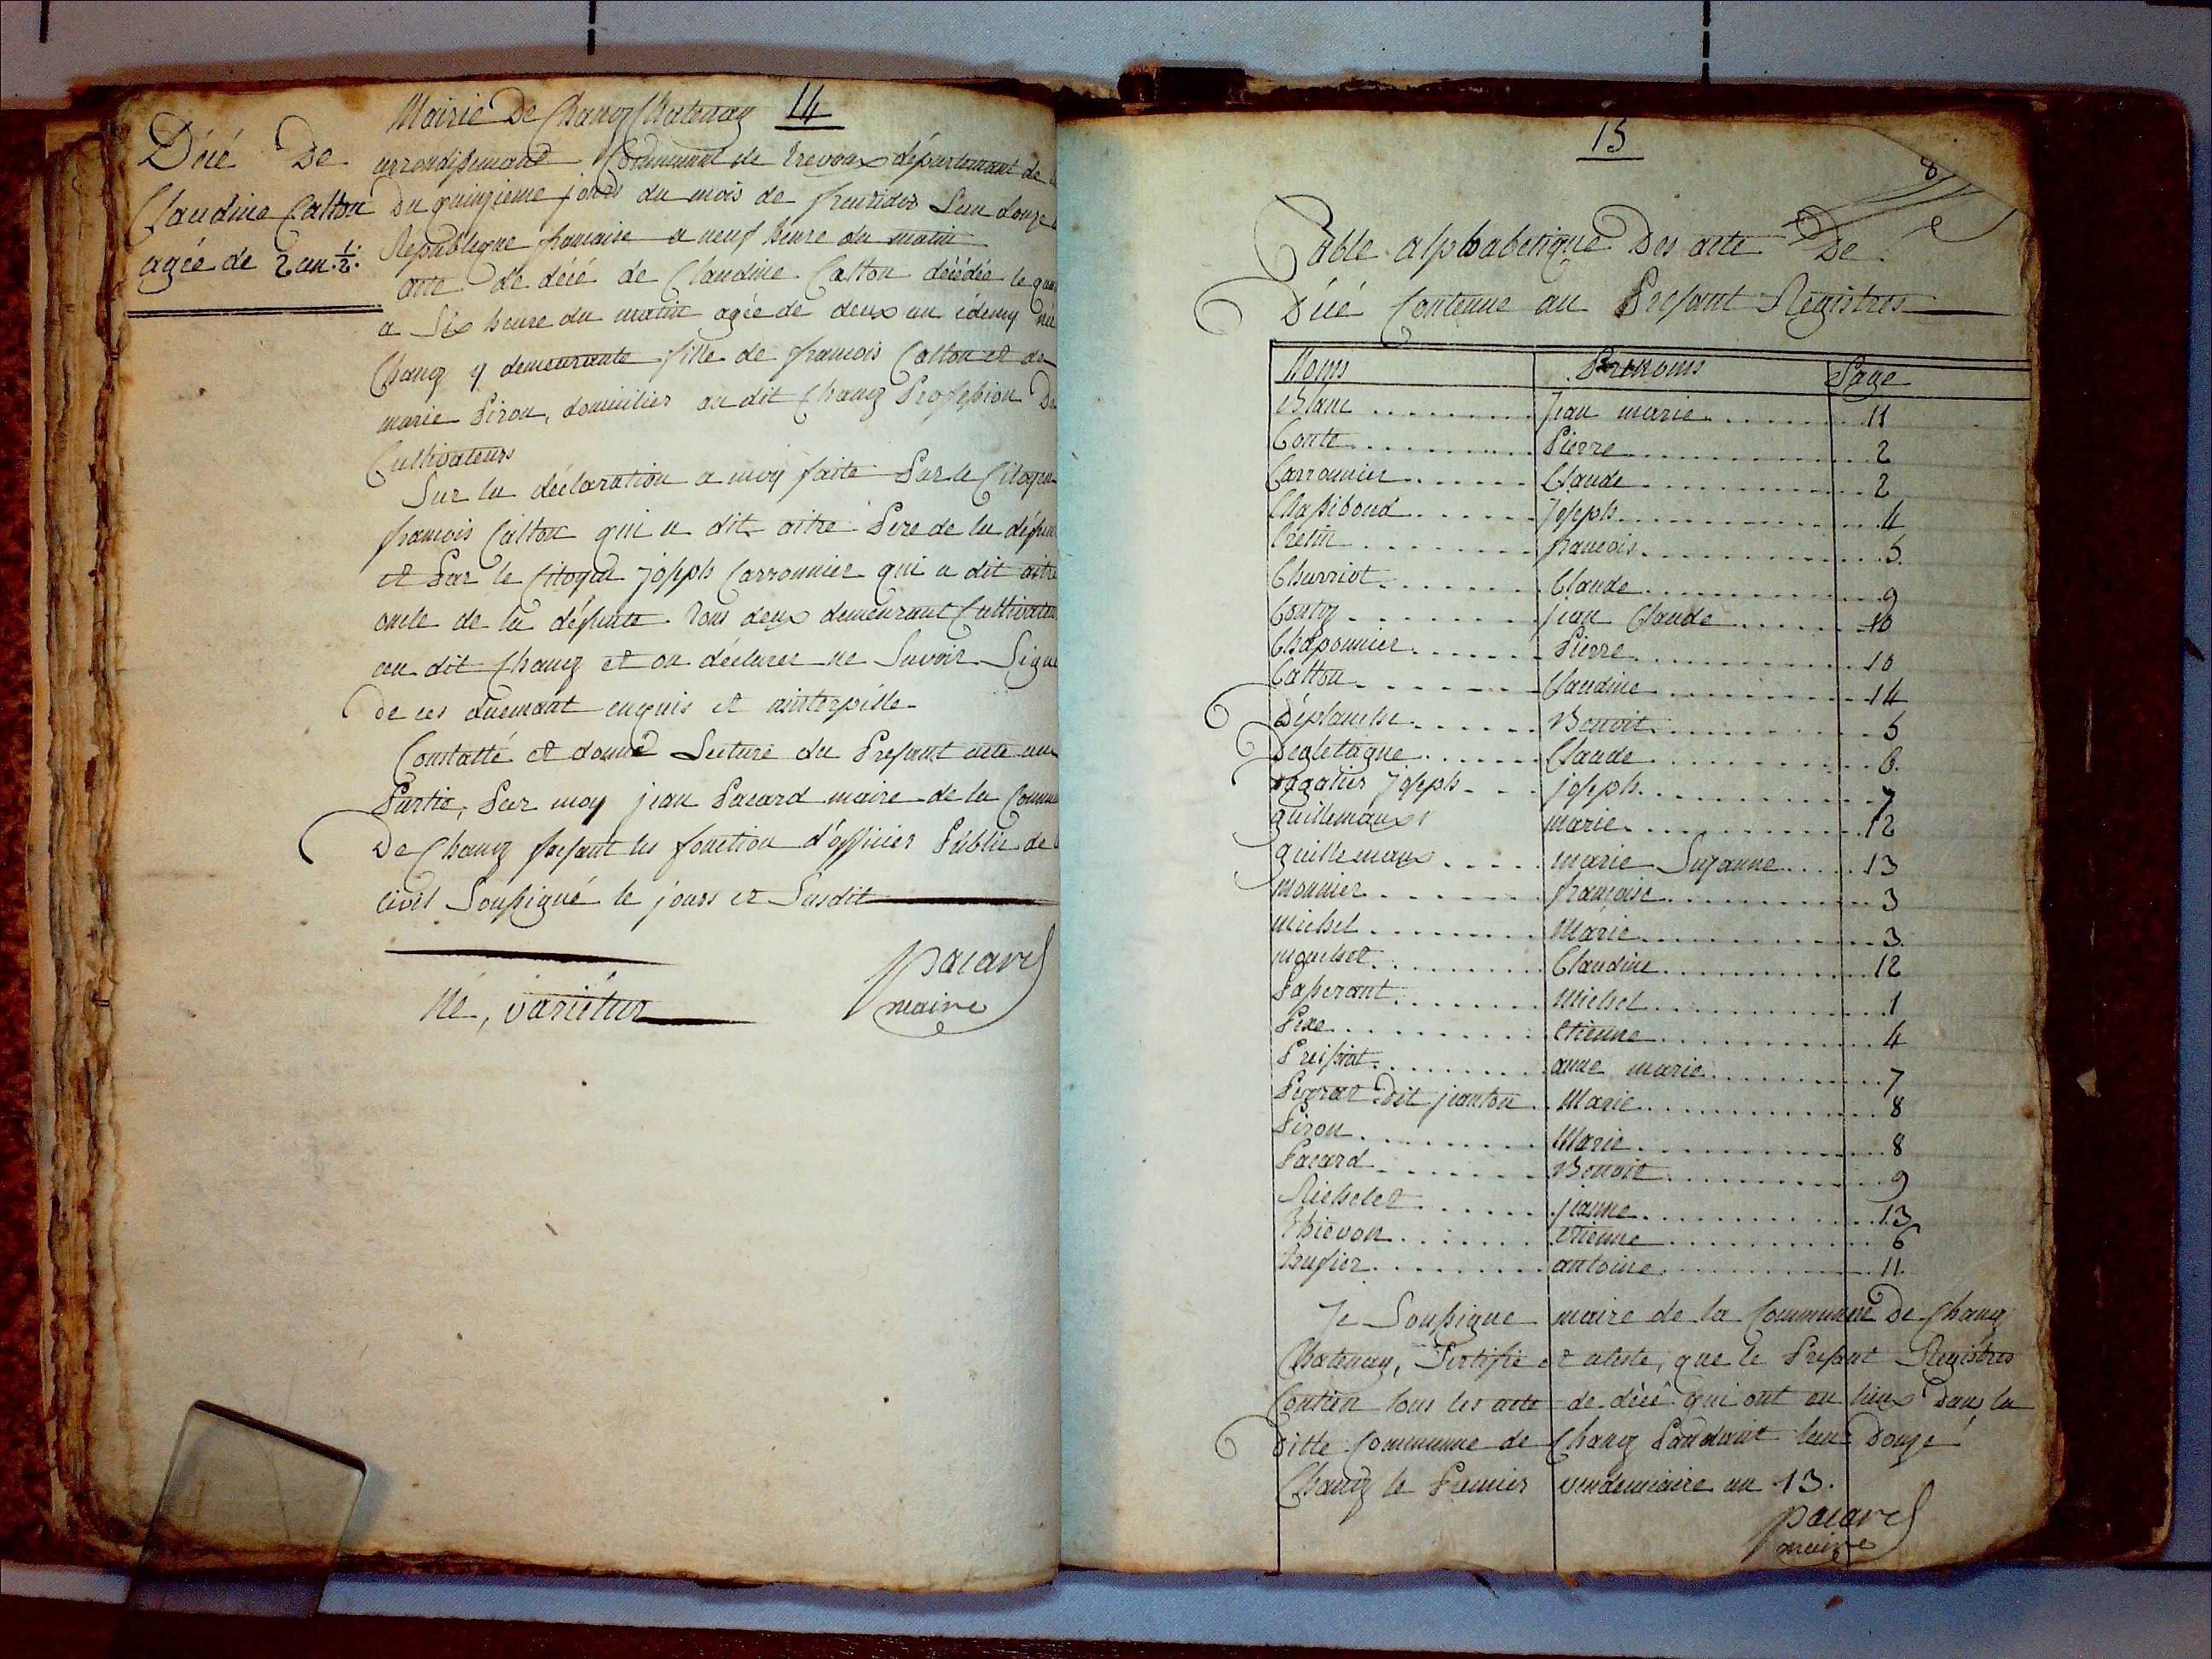 14
Mairie De Chanoz Chatenay
Décé De
Claudine Catton
agée de 2 an ½.
arrondissemant Communal de trevoux département de
Du quinzieme jours du mois de fructidor l'an douze
Republique francaise a neuf heure du matin
acte de décé de Claudine Catton décédée le
a Six heure du matin agée de deux an édemy né
Chanoz y demeurante fille de francois Catton et de
marie Piron, domicilier au dit Chanoz Profession De
Cultivateurs
Sur la déclaration a moy faite Par le Citoyen
francois Catton qui a dit aitre Pere de la
et Par le Citoyen joseph Carronnier qui a dit aitre
oncle de la défunte tous deux demeurant
au dit Chanoz et on déclarer ne Savoir Signé
de ces duemant enquis et
Constatté et donné Lecture du Presant acte aux
Partie, Par moy jean Pacard maire de la
De Chanoz faisant les fonction d'officier Public de
civil Soussigné le jours et Susdit
Né, variétur
pacard
maire
15
8
Table alphabetique Des acte De
Décé Contenue au Presant Régistres
Noms Prenoms Page
Blanc jean marie 11
Conte Pierre 2
Carronnier Claude 2
Chassiboud Joseph 4
Crétin francois 5.
Charriot Claude 9
Contoz jean Claude 10
Chaponnier Pierre 10
Catton Claudine 14
Déplanche Benoit 5
Degletagne Claude 6.
Joseph joseph 7
guillemaux marie 12
guillemaux marie Suzanne 13
monnier francoise 3
michel Marie 3.
mouchet Claudine 12
Passerant Michel 1
Pexe etienne 4
anne marie 7
dit jeanton Marie 8
Piron Marie 8
Pacard Benoit 9
Richelet janne 13
Thievon etienne 6
Trufier antoine 11.
Je Soussigne maire de la Commune De Chanoz
Chatenay, Certifie et ateste, que le Presant Régistres
Contien tous les acte de décé qui ont eu lieux Dans la
Ditte Commune de Chanoz Pandant lan Douze
Chanoz le Premier vendemiaire an 13.
pacard
maire